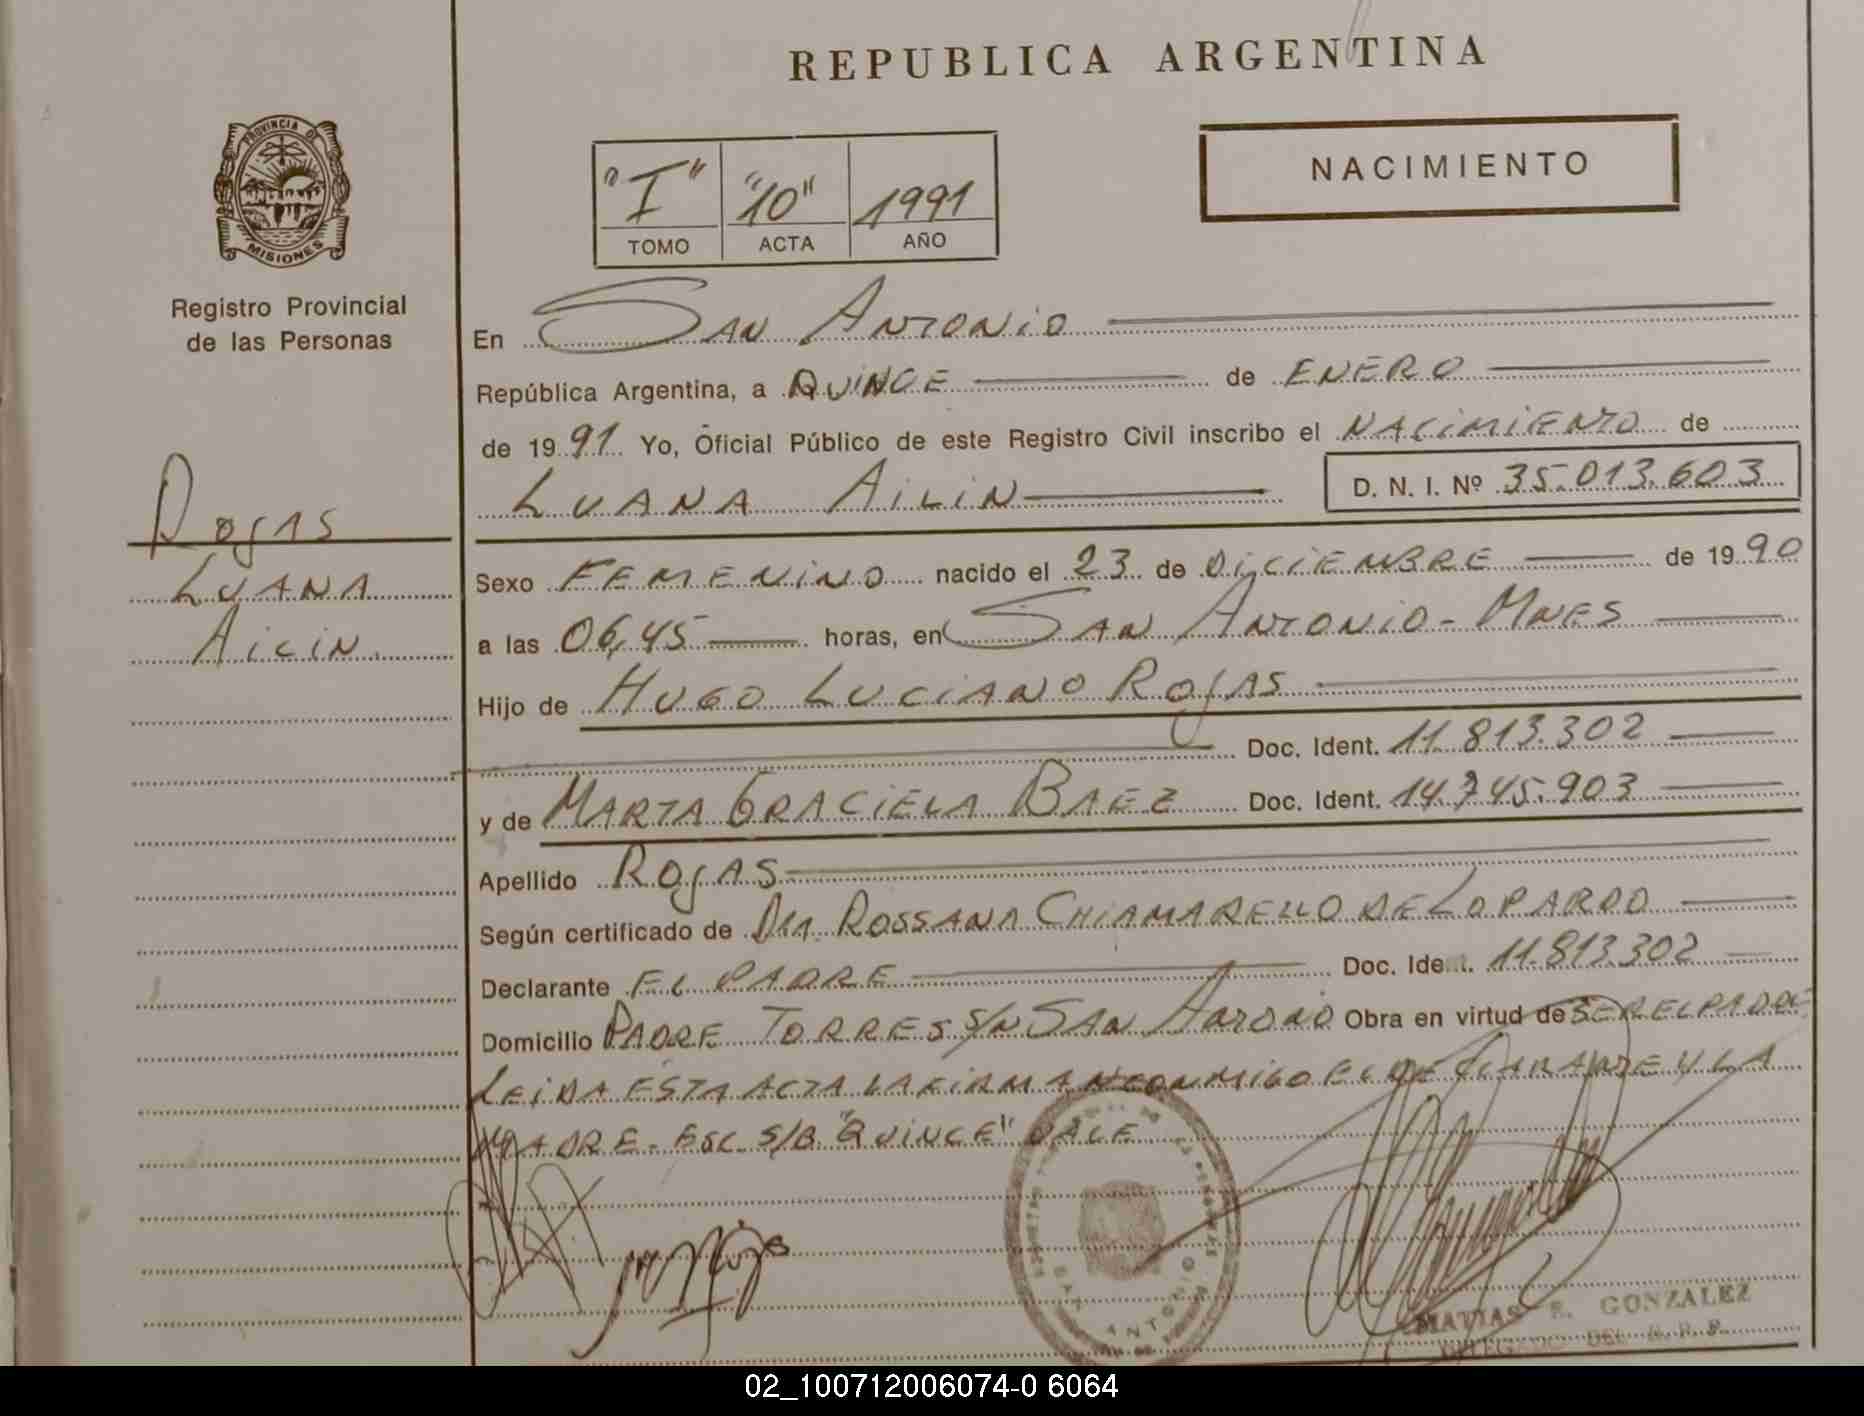 REPUBLICA ARGENTINA
PROVINCIA DE
MISIONES
Registro Provincial
de las Personas
"I" "10" 1991
TOMO ACTA AÑO
NACIMIENTO
En SAN ANTONIO
República Argentina, a QUINCE de ENERO
de 1991 Yo, Oficial Público de este Registro Civil inscribo el NACIMIENTO de
LUANA AILIN D. N. I. Nº 35.013.603
ROJAS
LUANA
AILIN
Sexo FEMENINO nacido el 23 de DICIEMBRE de 1990
a las 06,45 horas, en SAN ANTONIO - MNES
Hijo de HUGO LUCIANO ROJAS
Doc. Ident. 11.813.302
y de MARTA GRACIELA BAEZ Doc. Ident. 14.745.903
Apellido ROJAS
Según certificado de DRA. ROSSANA CHIAMARELLO DE LOPARDO
Declarante EL PADRE Doc. Ident. 11.813.302
Domicilio PADRE TORRES S/N SAN ANTONIO Obra en virtud de SER EL PADRE
LEIDA ESTA ACTA LA FIRMAN CONMIGO EL DECLARANTE Y LA
MADRE - ESC. S/B "QUINCE" VALE
SAN ANTONIO
MATIAS R. GONZALEZ
DELEGADO DEL R. R. P.
02_100712006074-0 6064